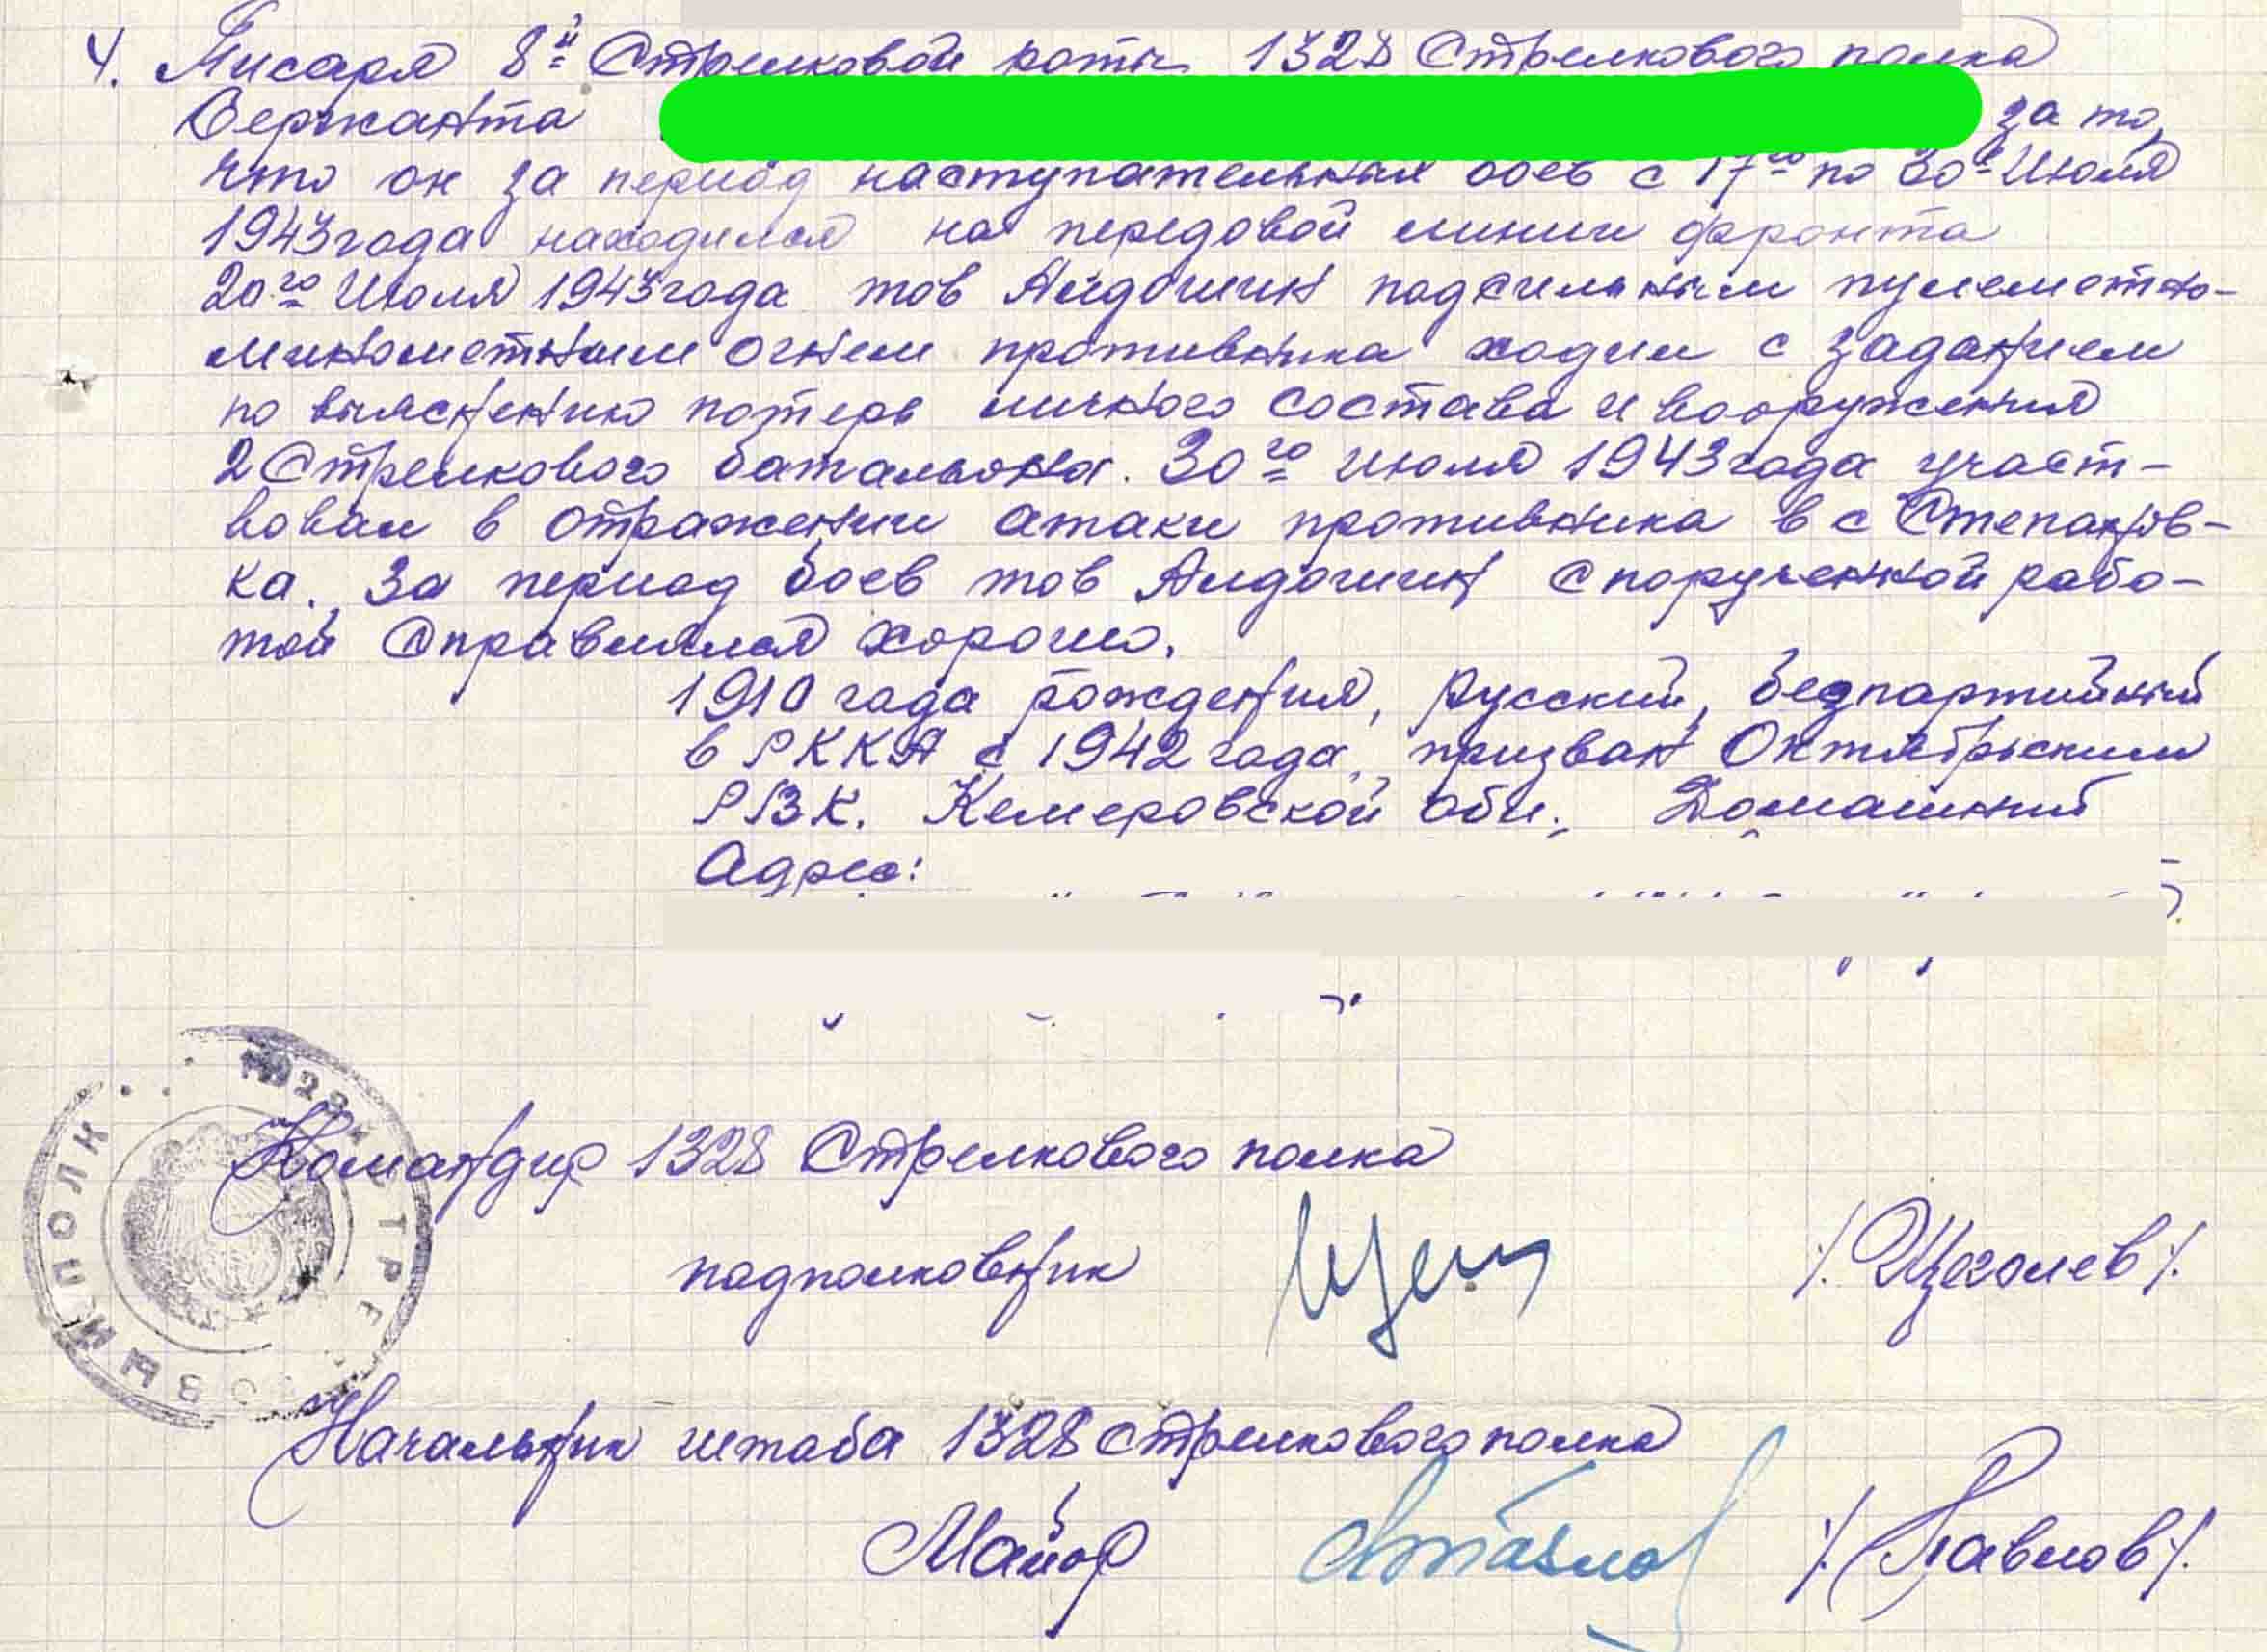 4. Писаря 8й Стрелковой роты 1328 Стрелкового полка
Сержанта за то,
что он за период наступательных боев с 17го по 30е Июля
1943 года находился на передовой линии фронта
20го Июля 1943 года тов под сильным пулеметно-
минометным огнем противника ходил с заданием
по выяснению потерь личного состава и вооружения
2 Стрелкового батальона. 30го июля 1943 года участ-
вовал в отражении атаки противника в с Степанов-
ка. За период боев тов с порученной рабо-
той справлялся хорошо.
1910 года рождения, русский, безпартийный
в РККА с 1942 года, призван Октябрьским
РВК. Кемеровской обл. Домашний
Адрес:
1328 СТРЕЛКОВЫЙ ПОЛК
Командир 1328 Стрелкового полка
подполковник /Щеголев/.
Начальник штаба 1328 стрелкового полка
Майор /Павлов/.